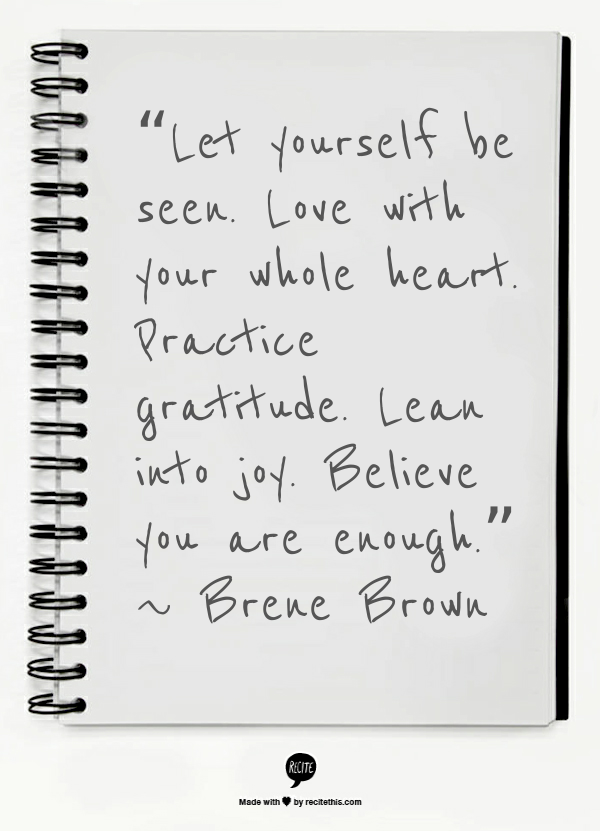 “Let yourself be
seen. Love with
your whole heart.
Practice
gratitude. Lean
into joy. Believe
you are enough.”
~ Brene Brown
RECITE
Made with ♥ by recitethis.com